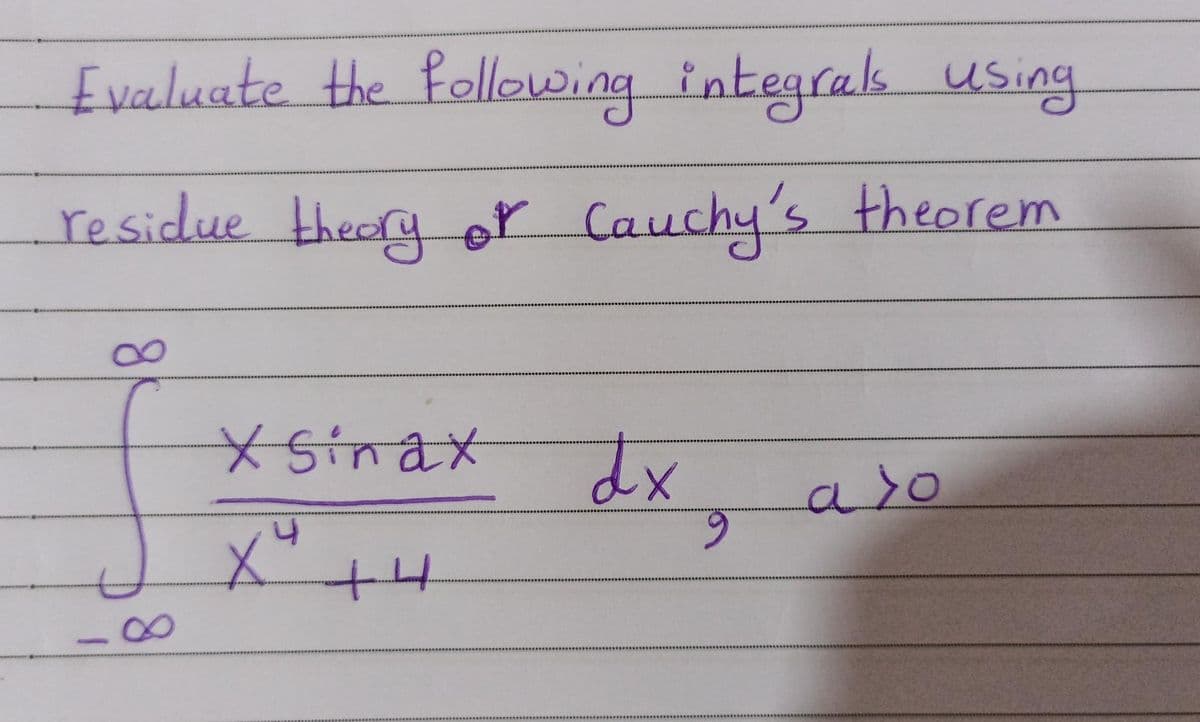 Evaluate the following integrals using
residue theory or Cauchy's theorem
∞
∫ x sin ax dx, a>0
x⁴ +4
-∞